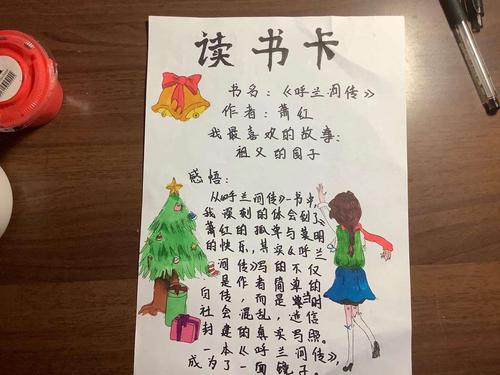 读书卡
书名：《呼兰河传》
作者：萧红
我最喜欢的故事：
祖父的园子
感悟：
从《呼兰河传》一书中，
我深刻的体会到了
萧红的孤单与聪明
的快乐，其实《呼兰
河传》写的不仅
是作者简单的
自传，而是当时
社会，混乱，迷信
封建的真实写照。
一本《呼兰河传》，
成为了一面镜子。